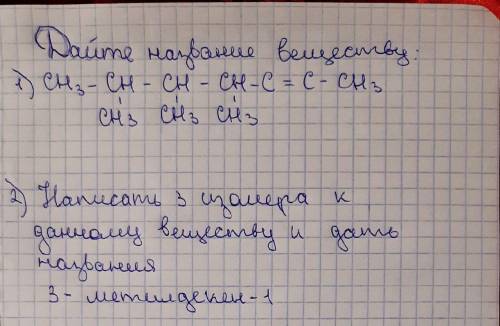 Дайте название веществу:
1) CH3 - CH - CH - CH - C = C - CH3
CH3 CH3 CH3
2) Написать 3 изомера к
данному веществу и дать
названия
3 - метилдекен - 1